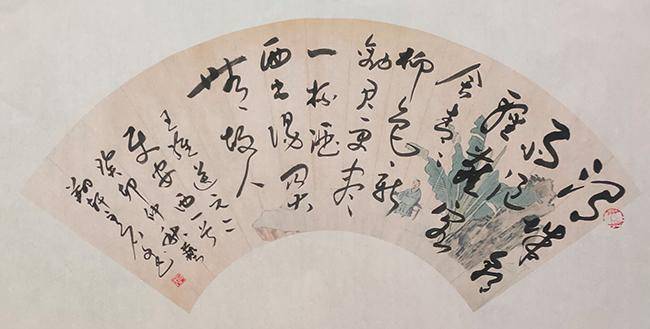 渭城朝
雨浥
輕塵客
舍青青
柳色新
勸君更盡
一杯酒
西出陽关
無故人
王維送元二
使安西一首
癸卯仲秋